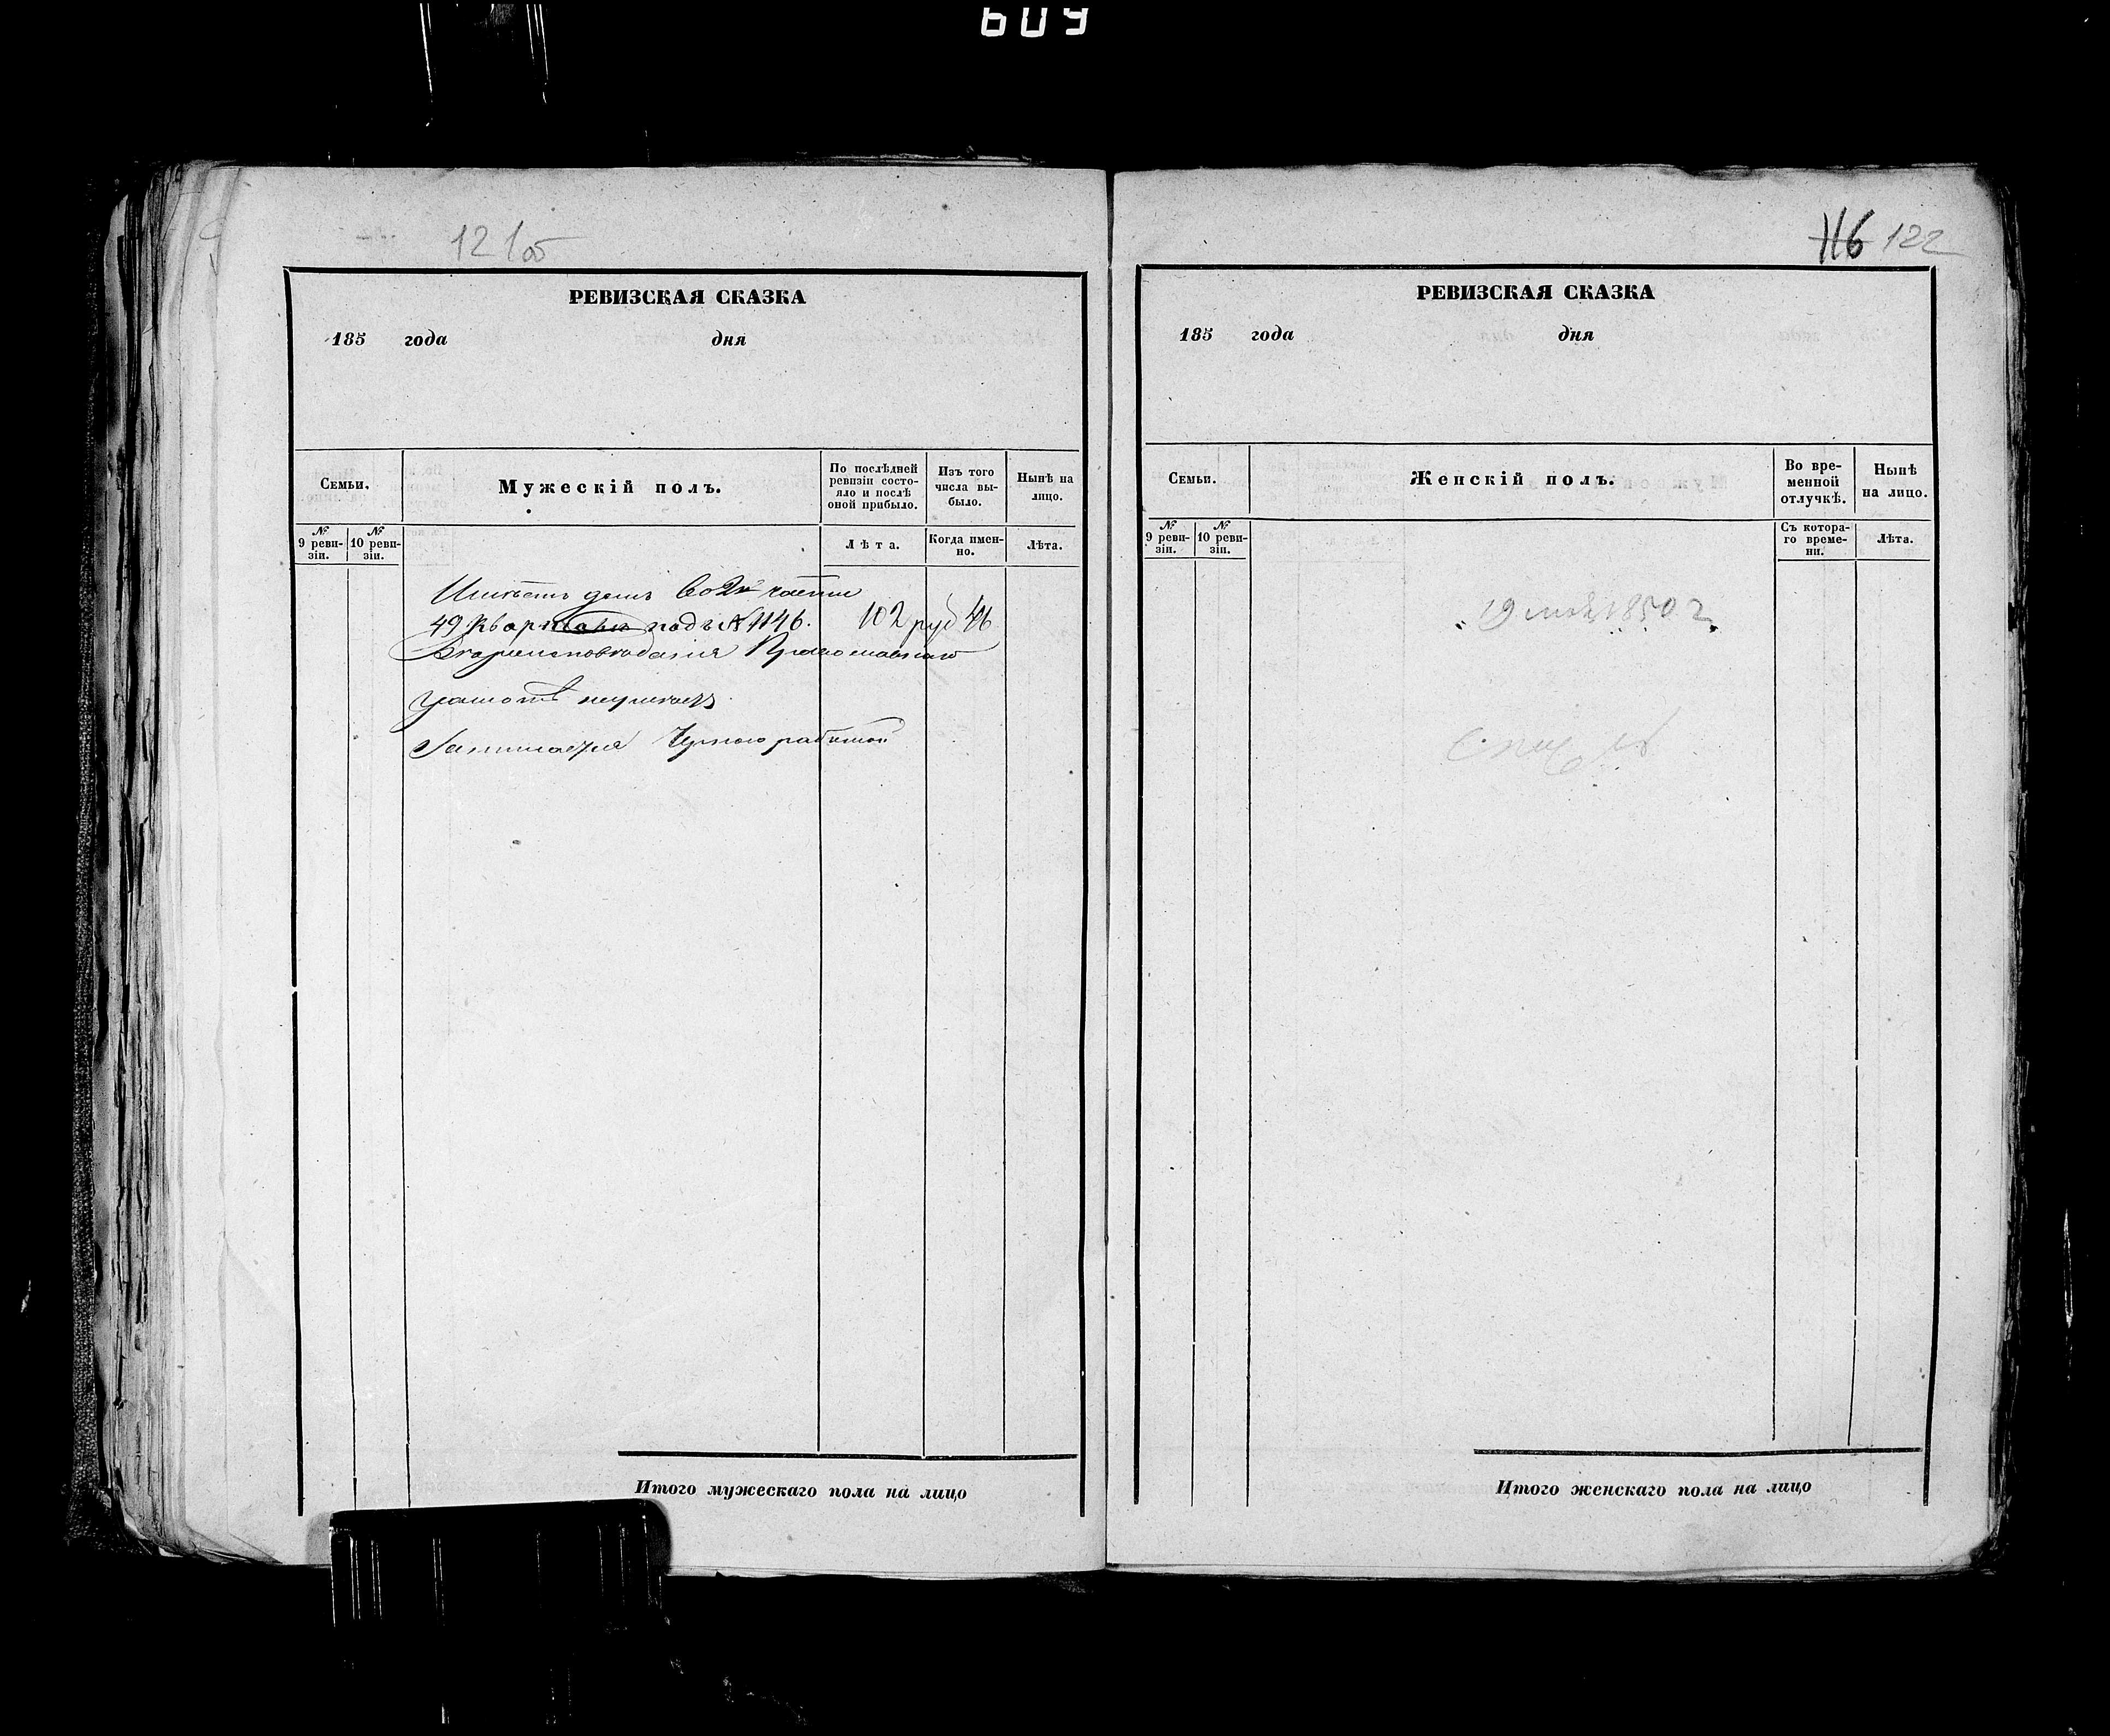 609
121об
РЕВИЗСКАЯ СКАЗКА
185 года дня
Семьи.
Мужескій полъ.
По послѣдней ревизіи состояло и послѣ оной прибыло.
Изъ того числа выбыло.
Нынѣ на лицо.
№ 9 ревизіи.
№ 10 ревизіи.
Лѣта.
Когда именно.
Лѣта.
Имѣетъ домъ во 2й части
49 Квар подъ № 1146. 102 руб 46
Вѣроисповѣданія Православнаго
грамотѣ неумѣетъ
Занимается Черною работой
Итого мужескаго пола на лицо
116 122
РЕВИЗСКАЯ СКАЗКА
185 года дня
Семьи.
Женскій полъ.
Во временной отлучкѣ.
Нынѣ на лицо.
№ 9 ревизіи.
№ 10 ревизіи.
Съ котораго времени.
Лѣта.
19 1850 г.
Итого женскаго пола на лицо